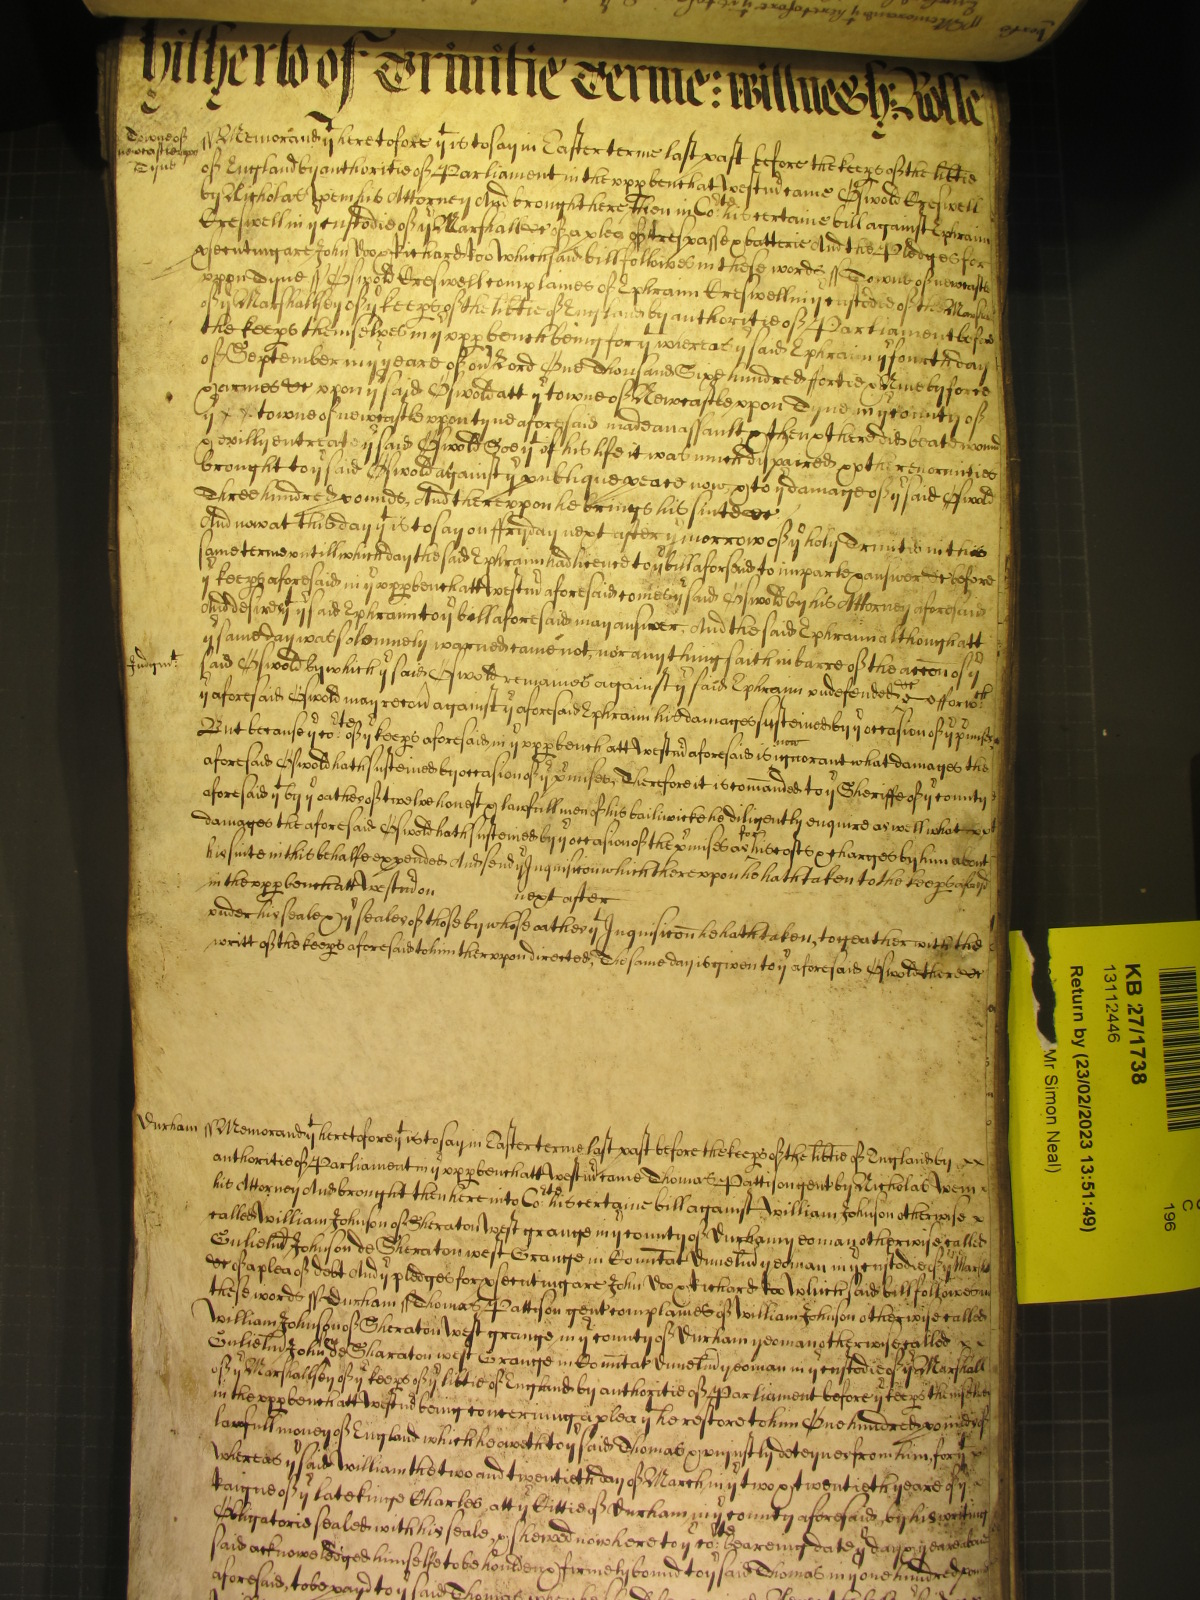 hitherto of Trinitie Terme: wittnes H: Rolle
Towne of
newcastle upon
Tyne
ss Memorand yt heretofore yt is to say in Easter terme last past before the keeps of the libtie
of England by authoritie of Parliament in the uppbench at Westmr came Oswold Creswell
by Nicholas Wem his Attorney And brought here then in Cort his certaine bill against Ephraim
Creswell in ye custodie of ye Marshall &c of a plea of trespasse & batterie And the Pledges for
psecuting are John Doo & Richard Roo which said bill followes in these words ss Towne of newcastle
uppon Tyne ss Oswold Creswell complaines of Ephraim Creswell in ye custodie of the Marshall
of ye Marshallsey of ye keeps of the libtie of England by authoritie of Parliament before
the keeps themselves in ye uppbench being for yt whereas ye said Ephraim ye fourth day
of September in ye yeare of our Lord One Thousand Sixe hundred ffortie & Nine by force
& armes &c uppon ye said Oswold att ye towne of Newcastle uppon Tyne in ye county of
ye x x towne of newcastle uppon tyne aforesaid made an assault & then & there did beate wound
& evilly entreate ye said Oswold Soe yt of his life it was much dispaired & other enormities
brought to ye said Oswold against ye publique peace now & to ye damage of ye said Oswold
Three hundred pounds, And thereuppon he brings his suite &c
And now at this day yt is to say on ffryday next after ye morrow of ye holy Trinitie in this
same terme untill which day the said Ephraim had licence to ye bill aforesaid to imparle & answer &c before
ye keeps aforesaid in ye uppbench att Westmr aforesaid comes ye said Oswold by his Attorney aforesaid
And desires yt ye said Ephraim to ye bill aforesaid may answer, And the said Ephraim although att
ye same day was solemnely warned came not, nor any thing saith in barre of the accon of ye
Judgmt
said Oswold by which ye said Oswold remaines against ye said Ephraim undefended &c ffor wch
ye aforesaid Oswold may recovr against ye aforesaid Ephraim his damages susteined by ye occasion of ye pmisses
But because ye Cort of ye keeps aforesaid in ye uppbench att Westmr aforesaid is now ignorant what damages the
aforesaid Oswold hath susteined by occasion of ye pmises, Therefore it is comanded to ye Sheriffe of ye county
aforesaid yt by ye oathes of twelve honest & lawfull men of his bailiwicke he diligently enquire as well what
damages the aforesaid Oswold hath susteined by ye occasion of the pmises as for his costs & charges by him about
his suite in this behalfe expended And send ye Inquisicon which thereuppon he hath taken to the keeps aforesd
in the uppbench att Westmr on next after
under his seale & ye seales of those by whose oathes yt Inquisicon he hath taken, togeather with the
writt of the keeps aforesaid to him theruppon directed, The same day is given to ye aforesaid Oswold there &c
Durham ss Memorand yt heretofore yt is to say in Easter terme last past before the keeps of the libtie of England by x x
authoritie of Parliament in ye uppbench att Westmr came Thomas Pattison gent by Nicholas Wem
his Attorney And brought then here into Cort his certaine bill against William Johnson otherwise x
called William Johnson of Sheraton West grange in ye county of Durham yeoman otherwise called
Gulielmu Johnson de Sheraton west Grange in Comitat Dunelm yeoman in ye custodie of ye Marshall
&c of a plea of debt And ye pledges for psecuting are John Doo & Richard Roo Which said bill followes in
these words ss Durham ss Thomas Pattison gent complaines of William Johnson otherwise called
William Johnson of Sheraton West grange in ye county of Durham yeoman otherwise called x x
Gulielmu Johnson de Sharaton west Grange in Comitat Dunelm yeoman in ye custodie of ye Marshall
of ye Marshallsey of ye keeps of ye libtie of England by authoritie of Parliament before ye keeps themselves
in the uppbench att Westmr being concerning a plea yt he restore to him One hundred pounds of
lawfull money of England which he oweth to ye said Thomas & uniustly deteynes from him, for yt
whereas ye said William the two and twentieth day of March in ye two & twentieth yeare of ye
raigne of ye late kinge Charles, att ye Cittie of Durham in ye county aforesaid, by his writing
Obligatorie sealed with his seale, & shewed now here to ye Cort beareing date ye day & yeare abovesaid
said acknowledged himselfe to be houlden & firmely bound to ye said Thomas in ye one hundred pounds
aforesaid, to be payd to ye said Thomas
KB 27/1738
13112446
Return by (23/02/2023 13:51:49)
Mr Simon Neal)
C
196